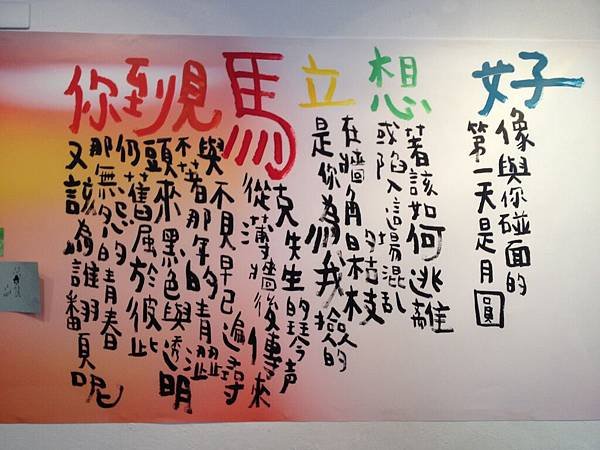 好
像與你碰面的
第一天是月圓
想
著該如何逃離
或陷入這場混亂
立
在牆角的枯枝
是你為我撿的
馬
克先生的琴声
從薄牆後傳來
見
與不見早已遍尋
不著那年的青澀
到
頭來黑色與透明
仍舊屬於彼此
你
那無忌的青春
又該為誰翻頁呢